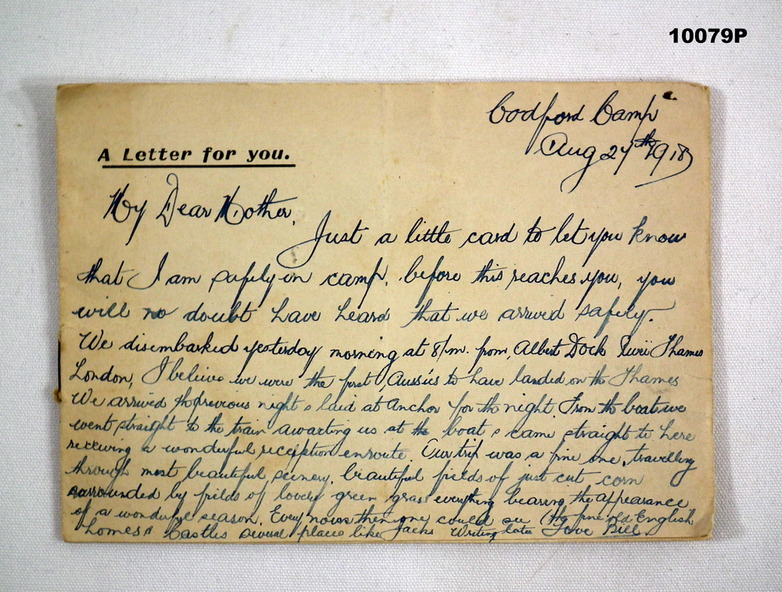 10079P
Codford Camp
Aug 27th 1918
A Letter for you.
My Dear Mother,
Just a little card to let you know
that I am safely in camp, before this reaches you, you
will no doubt have heard that we arrived safely.
We disembarked yesterday morning at 8/m. from, Albert Dock River Thames
London, I believe we were the first Aussies to have landed on the Thames
We arrived the previous night & laid at anchor for the night. From the boat we
went straight to the train awaiting us at the boat & came straight to here
receiving a wonderful reception enroute. Our trip was a fine one, travelling
through most beautiful scenery, beautiful fields of just cut corn
surrounded by fields of lovely green grass everything bearing the appearance
of a wonderful season. Every now & then one could see fine old English
homes & Castles several places like Jacks Writing later Love Bill